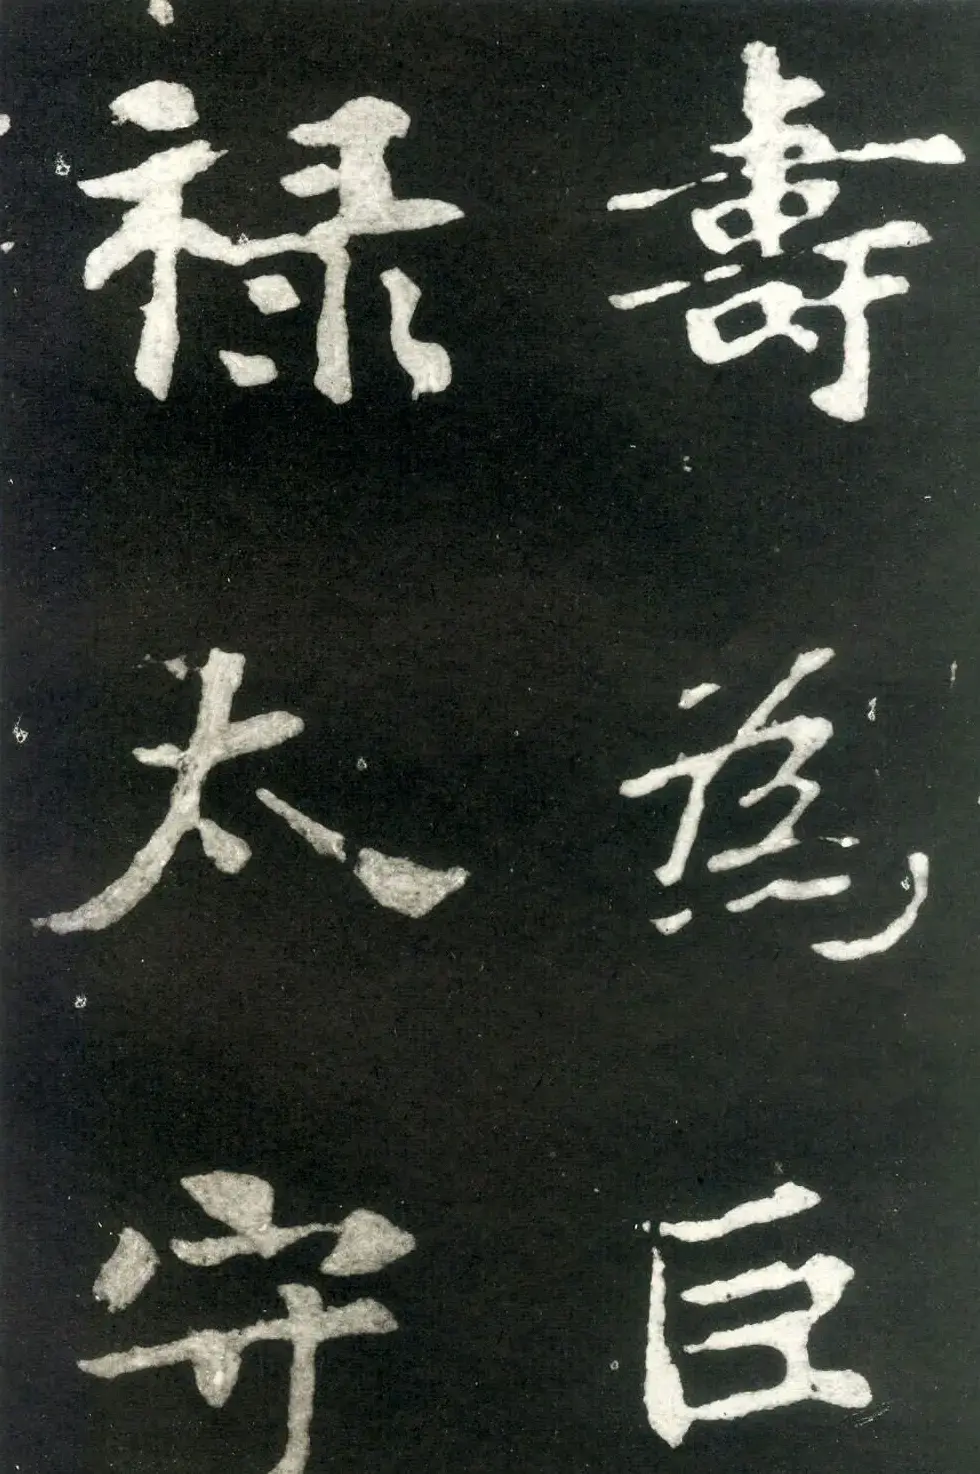 壽為巨
禄太守